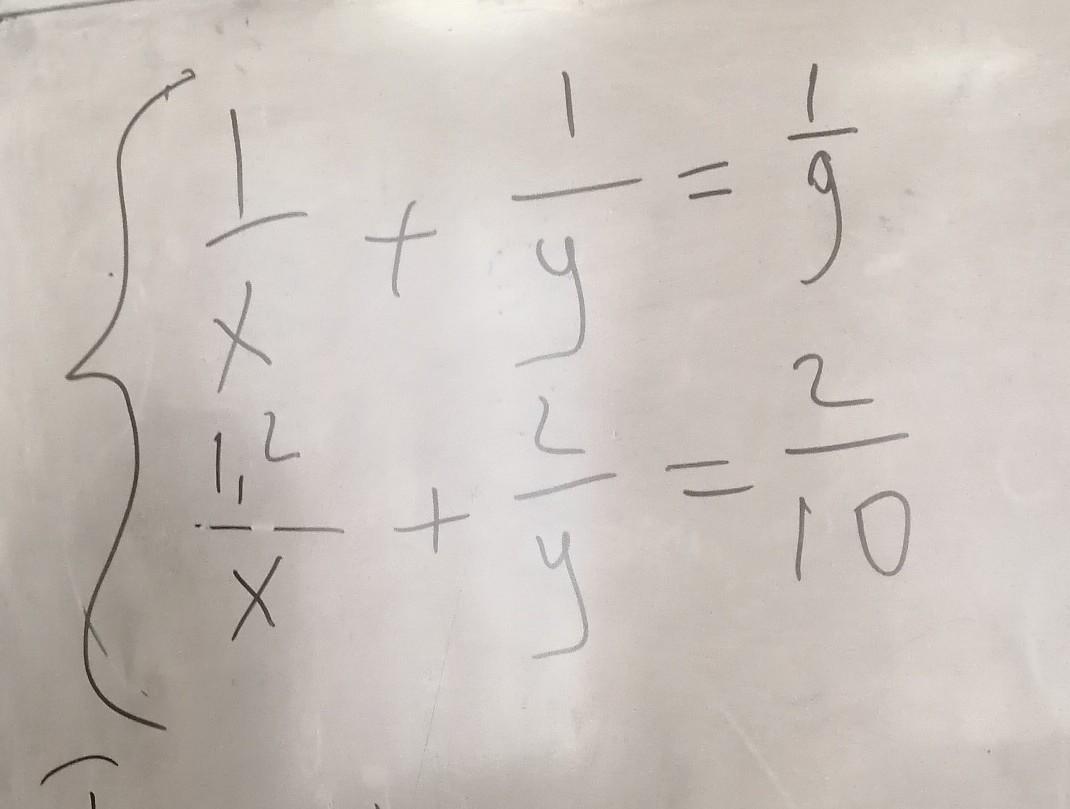 1/x + 1/y = 1/9
1,2/x + 2/y = 2/10